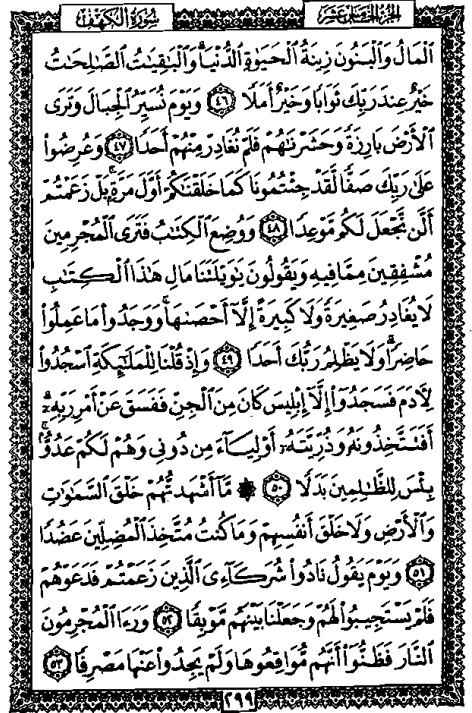 سُورَةُ الكَهْفِ الجُزْءُ الخَامِسَ عَشَرَ
ٱلْمَالُ وَٱلْبَنُونَ زِينَةُ ٱلْحَيَوٰةِ ٱلدُّنْيَاۖ وَٱلْبَٰقِيَٰتُ ٱلصَّٰلِحَٰتُ
خَيْرٌ عِندَ رَبِّكَ ثَوَابًا وَخَيْرٌ أَمَلًا ٤٦ وَيَوْمَ نُسَيِّرُ ٱلْجِبَالَ وَتَرَى
ٱلْأَرْضَ بَارِزَةً وَحَشَرْنَٰهُمْ فَلَمْ نُغَادِرْ مِنْهُمْ أَحَدًا ٤٧ وَعُرِضُوا۟
عَلَىٰ رَبِّكَ صَفًّا لَّقَدْ جِئْتُمُونَا كَمَا خَلَقْنَٰكُمْ أَوَّلَ مَرَّةٍۭۚ بَلْ زَعَمْتُمْ
أَلَّن نَّجْعَلَ لَكُم مَّوْعِدًا ٤٨ وَوُضِعَ ٱلْكِتَٰبُ فَتَرَى ٱلْمُجْرِمِينَ
مُشْفِقِينَ مِمَّا فِيهِ وَيَقُولُونَ يَٰوَيْلَتَنَا مَالِ هَٰذَا ٱلْكِتَٰبِ
لَا يُغَادِرُ صَغِيرَةً وَلَا كَبِيرَةً إِلَّآ أَحْصَىٰهَاۚ وَوَجَدُوا۟ مَا عَمِلُوا۟
حَاضِرًاۗ وَلَا يَظْلِمُ رَبُّكَ أَحَدًا ٤٩ وَإِذْ قُلْنَا لِلْمَلَٰٓئِكَةِ ٱسْجُدُوا۟
لِءَادَمَ فَسَجَدُوٓا۟ إِلَّآ إِبْلِيسَ كَانَ مِنَ ٱلْجِنِّ فَفَسَقَ عَنْ أَمْرِ رَبِّهِۦٓۗ
أَفَتَتَّخِذُونَهُۥ وَذُرِّيَّتَهُۥٓ أَوْلِيَآءَ مِن دُونِى وَهُمْ لَكُمْ عَدُوٌّۢۚ
بِئْسَ لِلظَّٰلِمِينَ بَدَلًا ٥٠ ۞ مَّآ أَشْهَدتُّهُمْ خَلْقَ ٱلسَّمَٰوَٰتِ
وَٱلْأَرْضِ وَلَا خَلْقَ أَنفُسِهِمْ وَمَا كُنتُ مُتَّخِذَ ٱلْمُضِلِّينَ عَضُدًا
٥١ وَيَوْمَ يَقُولُ نَادُوا۟ شُرَكَآءِىَ ٱلَّذِينَ زَعَمْتُمْ فَدَعَوْهُمْ
فَلَمْ يَسْتَجِيبُوا۟ لَهُمْ وَجَعَلْنَا بَيْنَهُم مَّوْبِقًا ٥٢ وَرَءَا ٱلْمُجْرِمُونَ
ٱلنَّارَ فَظَنُّوٓا۟ أَنَّهُم مُّوَاقِعُوهَا وَلَمْ يَجِدُوا۟ عَنْهَا مَصْرِفًا ٥٣
٢٩٩